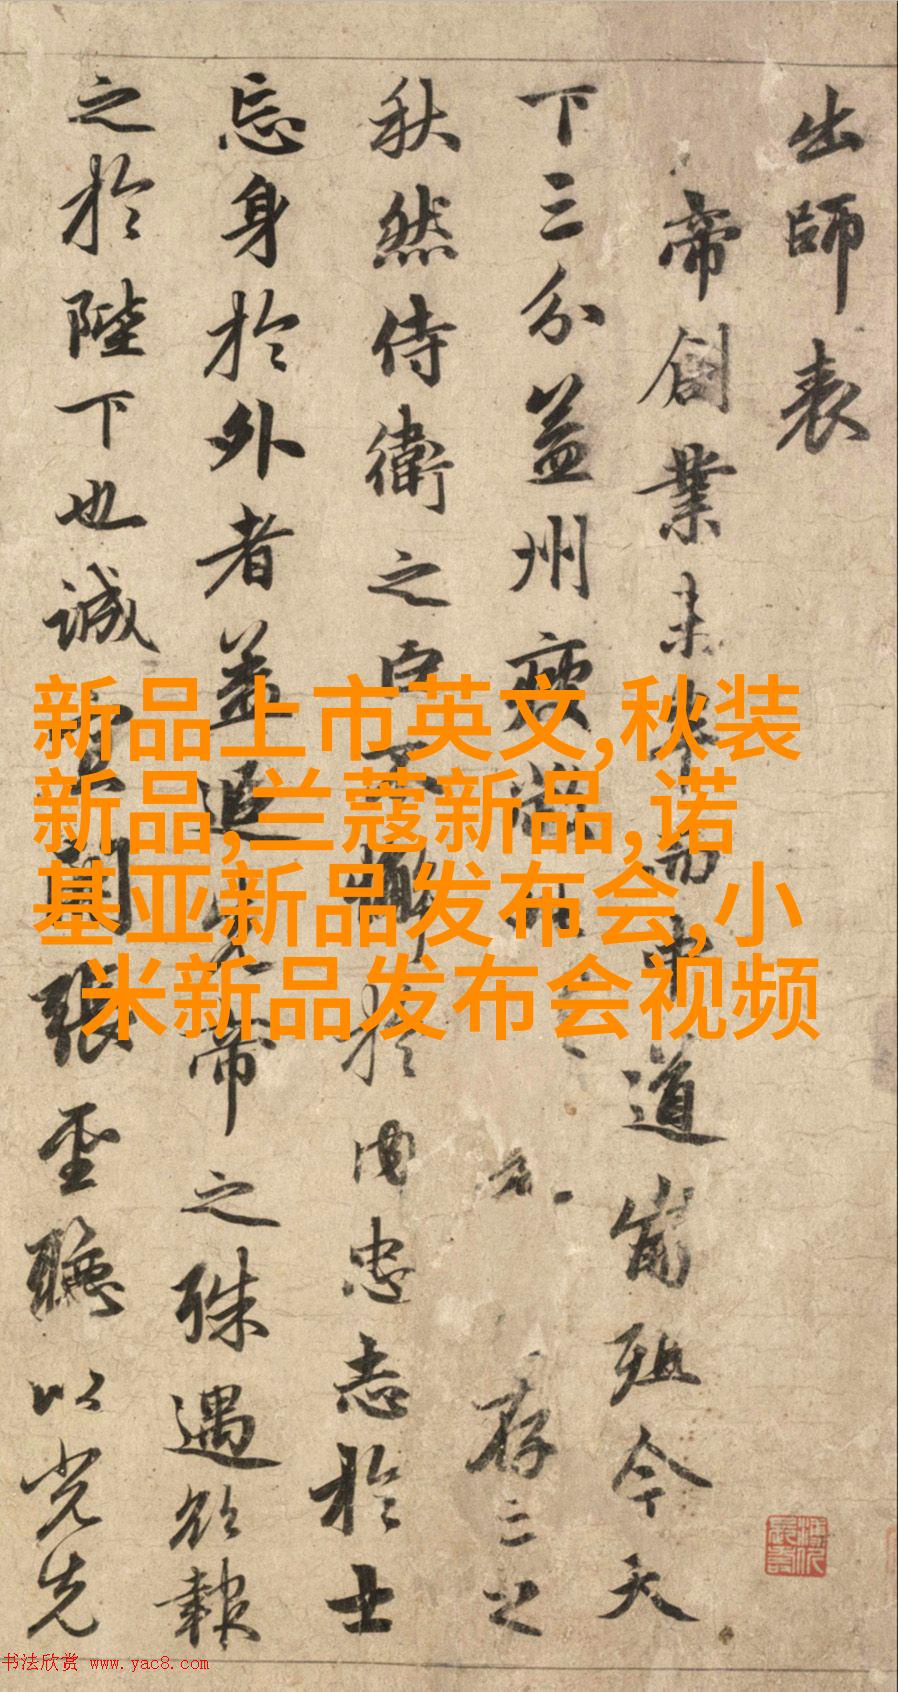 出師表
帝創業未半而中道崩殂今天
下三分益州疲存亡之
秋然侍衛之臣不懈於内忠志於士
忘身於外者蓋追先帝之殊遇欲報
之於陛下也誠宜開張聖聽以光先
新品上市英文,秋装
新品,兰蔻新品,诺
基亚新品发布会,小
米新品发布会视频
书法欣赏 www.yac8.com